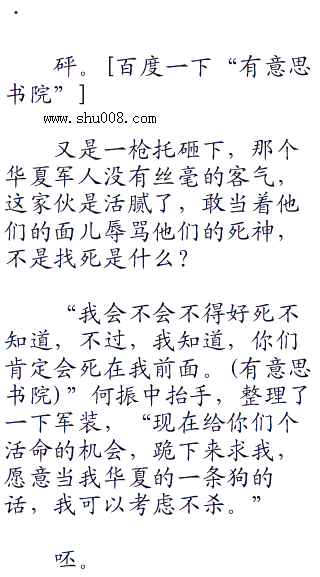 .
砰。[百度一下“有意思
书院”]
www.shu008.com
又是一枪托砸下，那个
华夏军人没有丝毫的客气，
这家伙是活腻了，敢当着他
们的面儿辱骂他们的死神，
不是找死是什么？
“我会不会不得好死不
知道，不过，我知道，你们
肯定会死在我前面。(有意思
书院)”何振中抬手，整理了
一下军装，“现在给你们个
活命的机会，跪下来求我，
愿意当我华夏的一条狗的
话，我可以考虑不杀。”
呸。